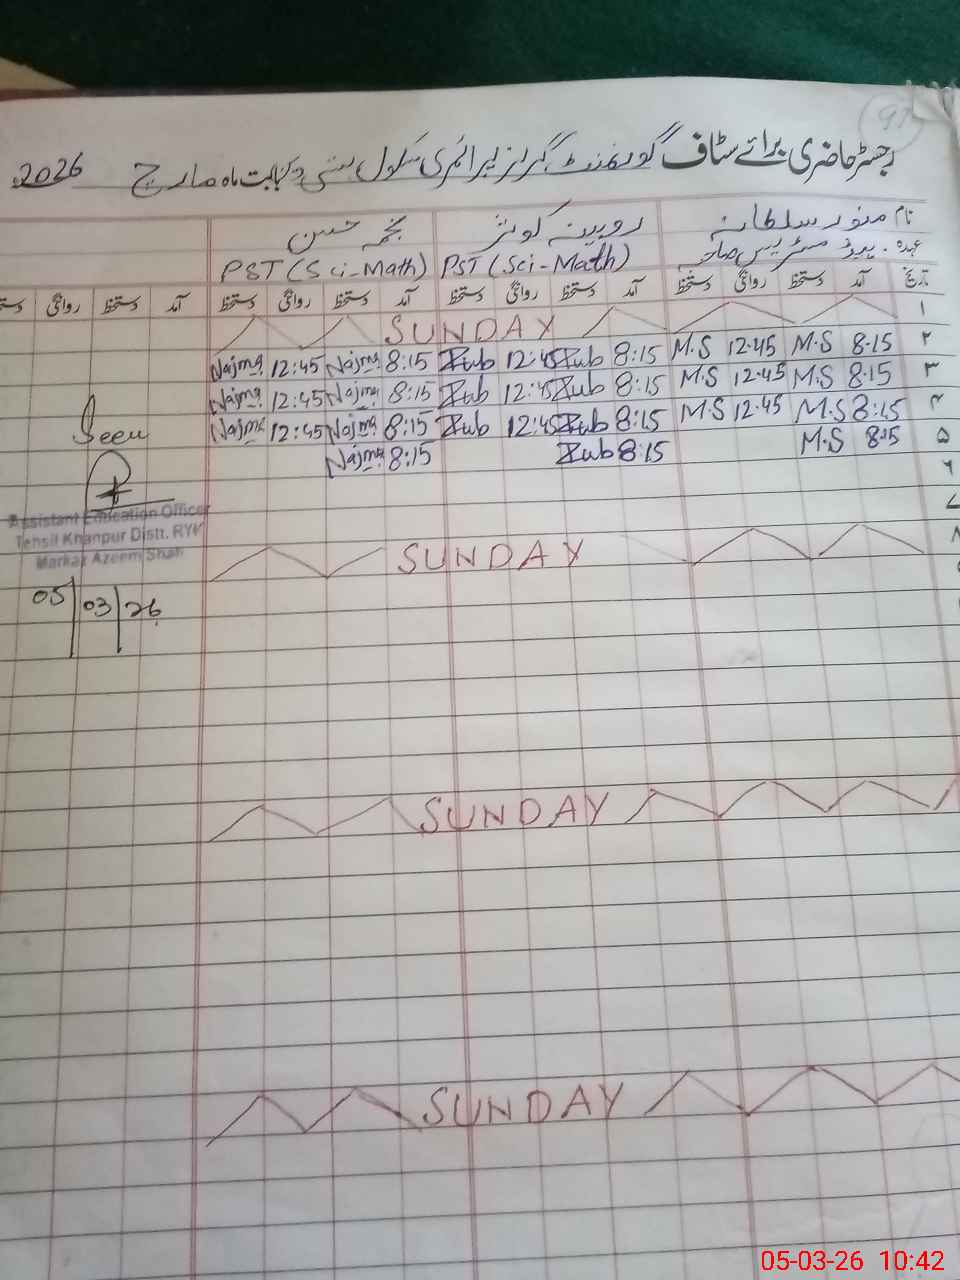 97
رجسٹر حاضری برائے سٹاف گورنمنٹ گرلز پرائمری سکول بستی بابت ماہ مارچ 2026
نام منور سلطانہ روبینہ کوثر نجمہ حسین
عہدہ۔ ہیڈ مسٹریس صاحبہ PST (Sci-Math) PST (Sci-Math)
تاریخ آمد دستخط روانگی دستخط آمد دستخط روانگی دستخط آمد دستخط روانگی دستخط آمد دستخط روانگی دستخط
۱ SUNDAY
۲ 8:15 M.S 12:45 M.S 8:15 Rub 12:45 Rub 8:15 Najma 12:45 Najma
۳ 8:15 M.S 12:45 M.S 8:15 Rub 12:45 Rub 8:15 Najma 12:45 Najma
۴ 8:15 M.S 12:45 M.S 8:15 Rub 12:45 Rub 8:15 Najma 12:45 Najma
۵ 8:15 M.S 8:15 Rub 8:15 Najma
۶
۷
۸ SUNDAY
Seen
Assistant Education Officer
Tehsil Khanpur Distt. RYK
Markaz Azeem Shah
05 03 26
SUNDAY
SUNDAY
05-03-26 10:42